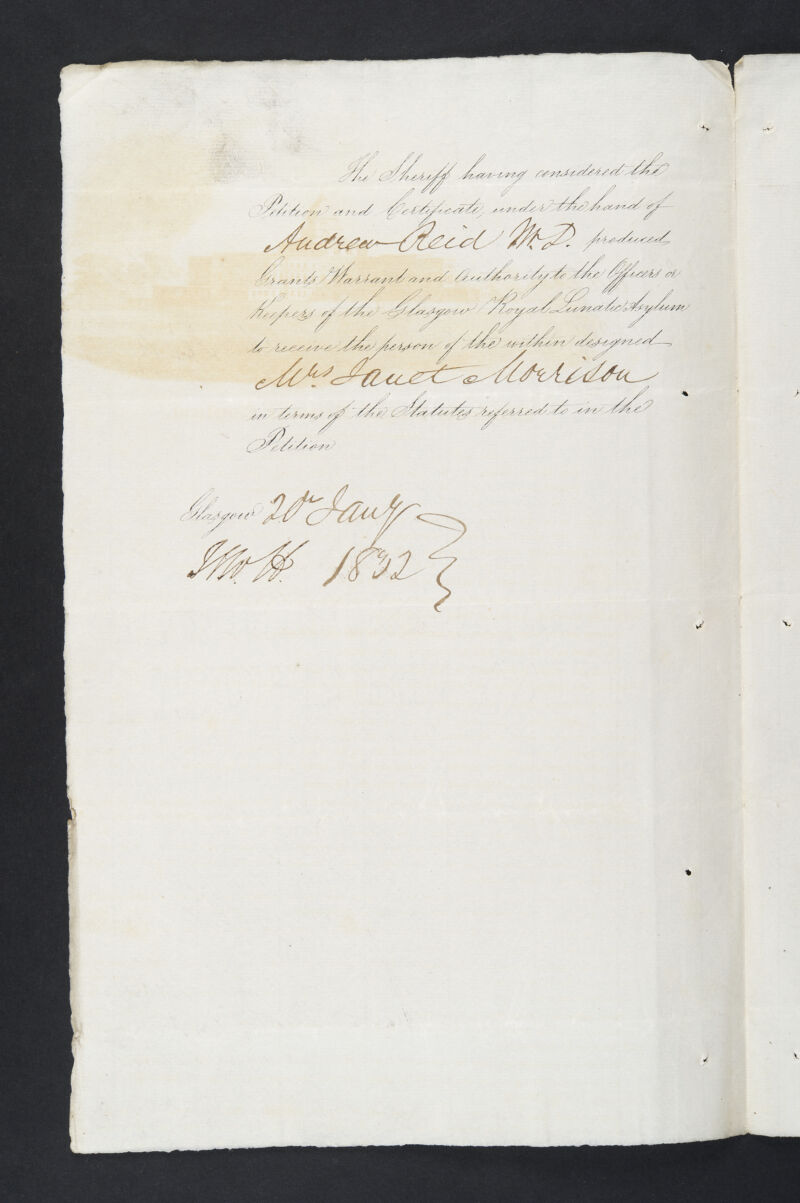 The Sheriff having considered the
Petition and Certificate, under the hand of
Andrew Reid M.D. produced
Grants Warrant and Authority to the Officers or
Keepers of the Glasgow Royal Lunatic Asylum
to receive the person of the within designed
Mrs Janet Morrison
in terms of the Statutes referred to in the
Petition
Glasgow 20th Jany
1832